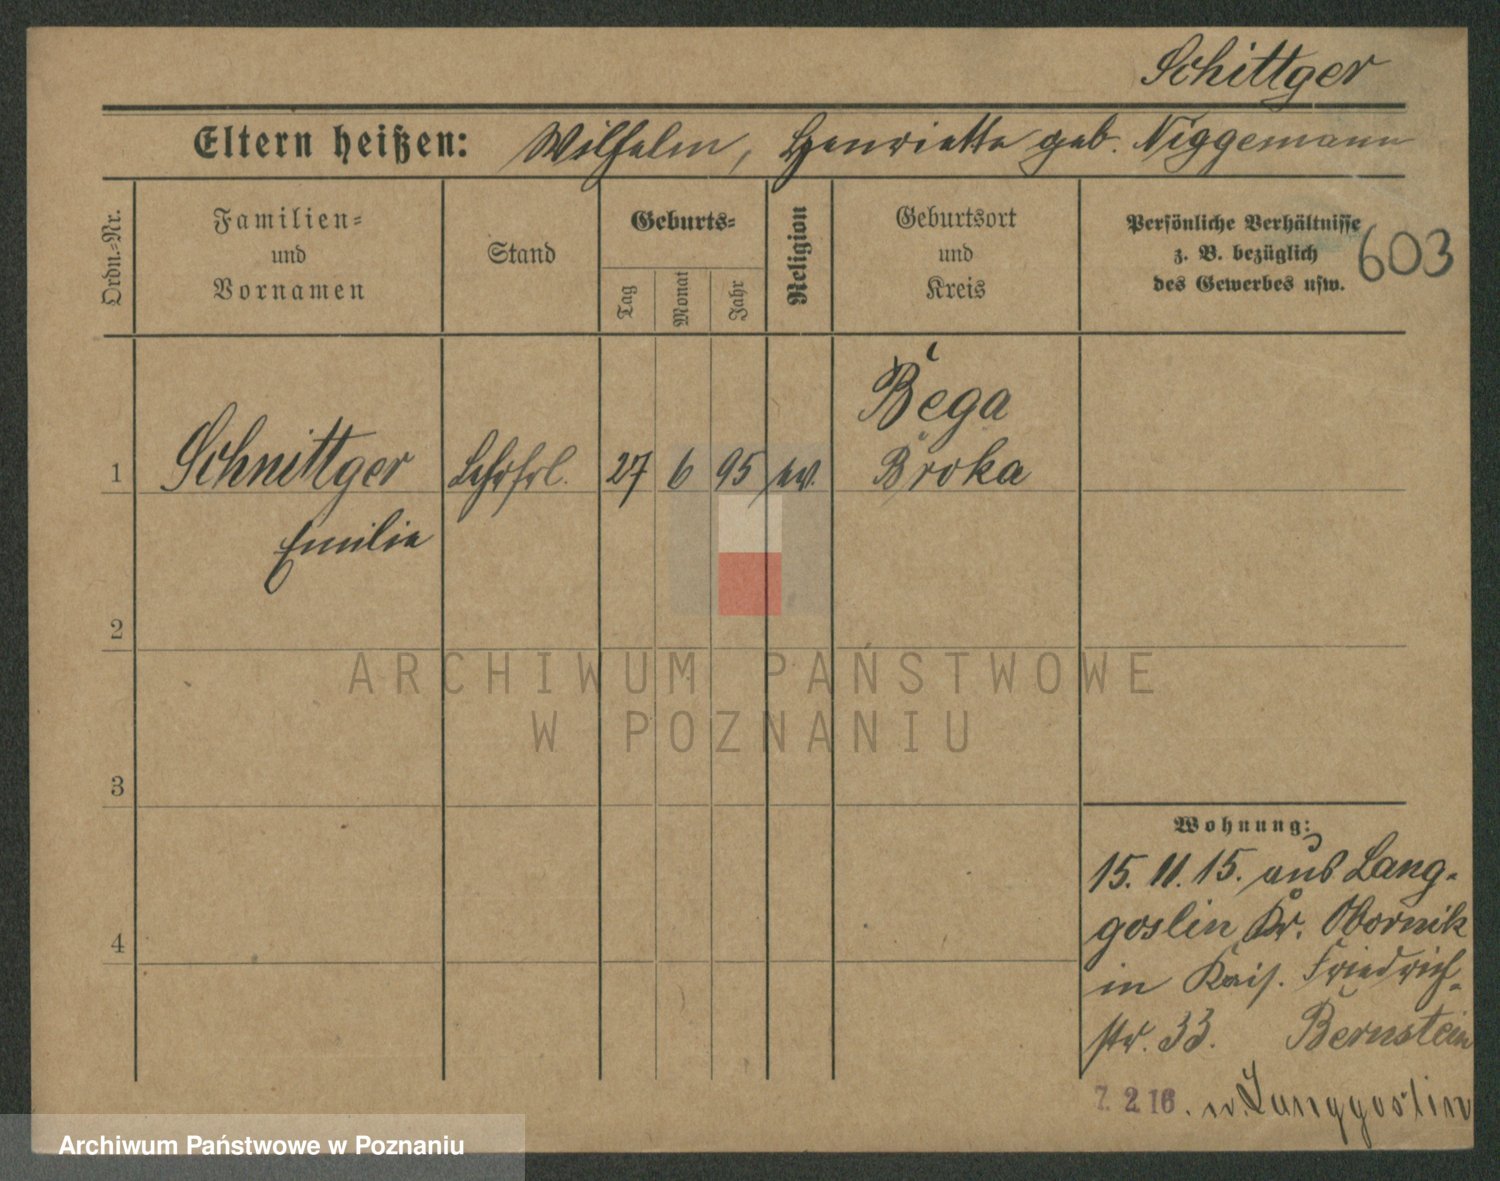 Schittger
Eltern heißen: Wilhelm, Henriette geb. Niggemann
Ordn.-Nr.
Familien-
und
Vornamen
Stand
Geburts-
Tag
Monat
Jahr
Religion
Geburtsort
und
Kreis
Persönliche Verhältnisse
z. B. bezüglich
des Gewerbes usw.
603
1
Schnittger
Emilie
Lehrfrl.
27
6
95
ev.
Bega
Broka
2
3
4
Wohnung:
15. 11. 15. aus Lang-
goslin Kr. Obornik
in Kais. Friedrich-
str. 33. Bernstein
7. 2. 16. n. Langgoslin
ARCHIWUM PAŃSTWOWE
W POZNANIU
Archiwum Państwowe w Poznaniu